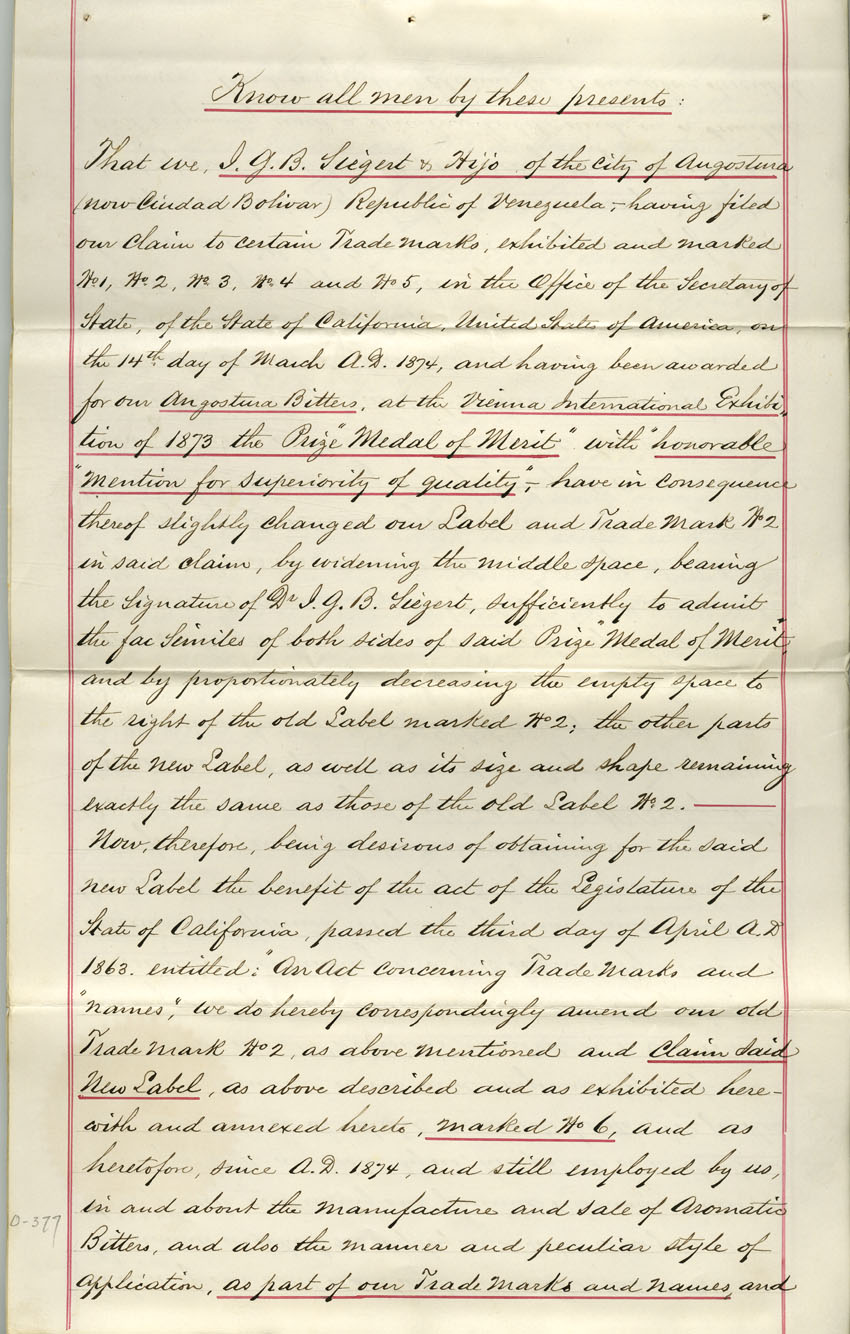 Know all men by these presents:
That we, I. G. B. Siegert & Hijo of the city of Angostura
(now Ciudad Bolivar) Republic of Venezuela,- having filed
our claim to certain Trade marks, exhibited and marked
No 1, No. 2, No. 3, No. 4 and No 5, in the Office of the Secretary of
State, of the State of California, United State of America, on
the 14th day of March A.D. 1874, and having been awarded
for our Angostura Bitters, at the Vienna International Exhibi„
tion of 1873 the Prize "Medal of Merit" with "honorable
"mention for superiority of quality",- have in consequence
thereof slightly changed our Label and Trade Mark No 2
in said claim, by widening the middle space, bearing
the signature of Dr I. G. B. Siegert, sufficiently to admit
the fac Similes of both sides of said Prize "Medal of Merit",
and by proportionately decreasing the empty space to
the right of the old Label marked No 2; the other parts
of the new Label, as well as its size and shape remaining
exactly the same as those of the old Label No. 2. —
Now, therefore, being desirous of obtaining for the said
new Label the benefit of the act of the Legislature of the
State of California, passed the third day of April A.D
1863. entitled: "An Act concerning Trade Marks and
"names", we do hereby correspondingly amend our old
Trade mark No 2, as above mentioned and claim said
New Label, as above described and as exhibited here-
with and annexed hereto, marked No 6, and as
heretofore, since A.D. 1874, and still employed by us,
in and about the manufacture and sale of Aromatic
Bitters, and also the manner and peculiar style of
application, as part of our Trade Marks and names, and
D-377